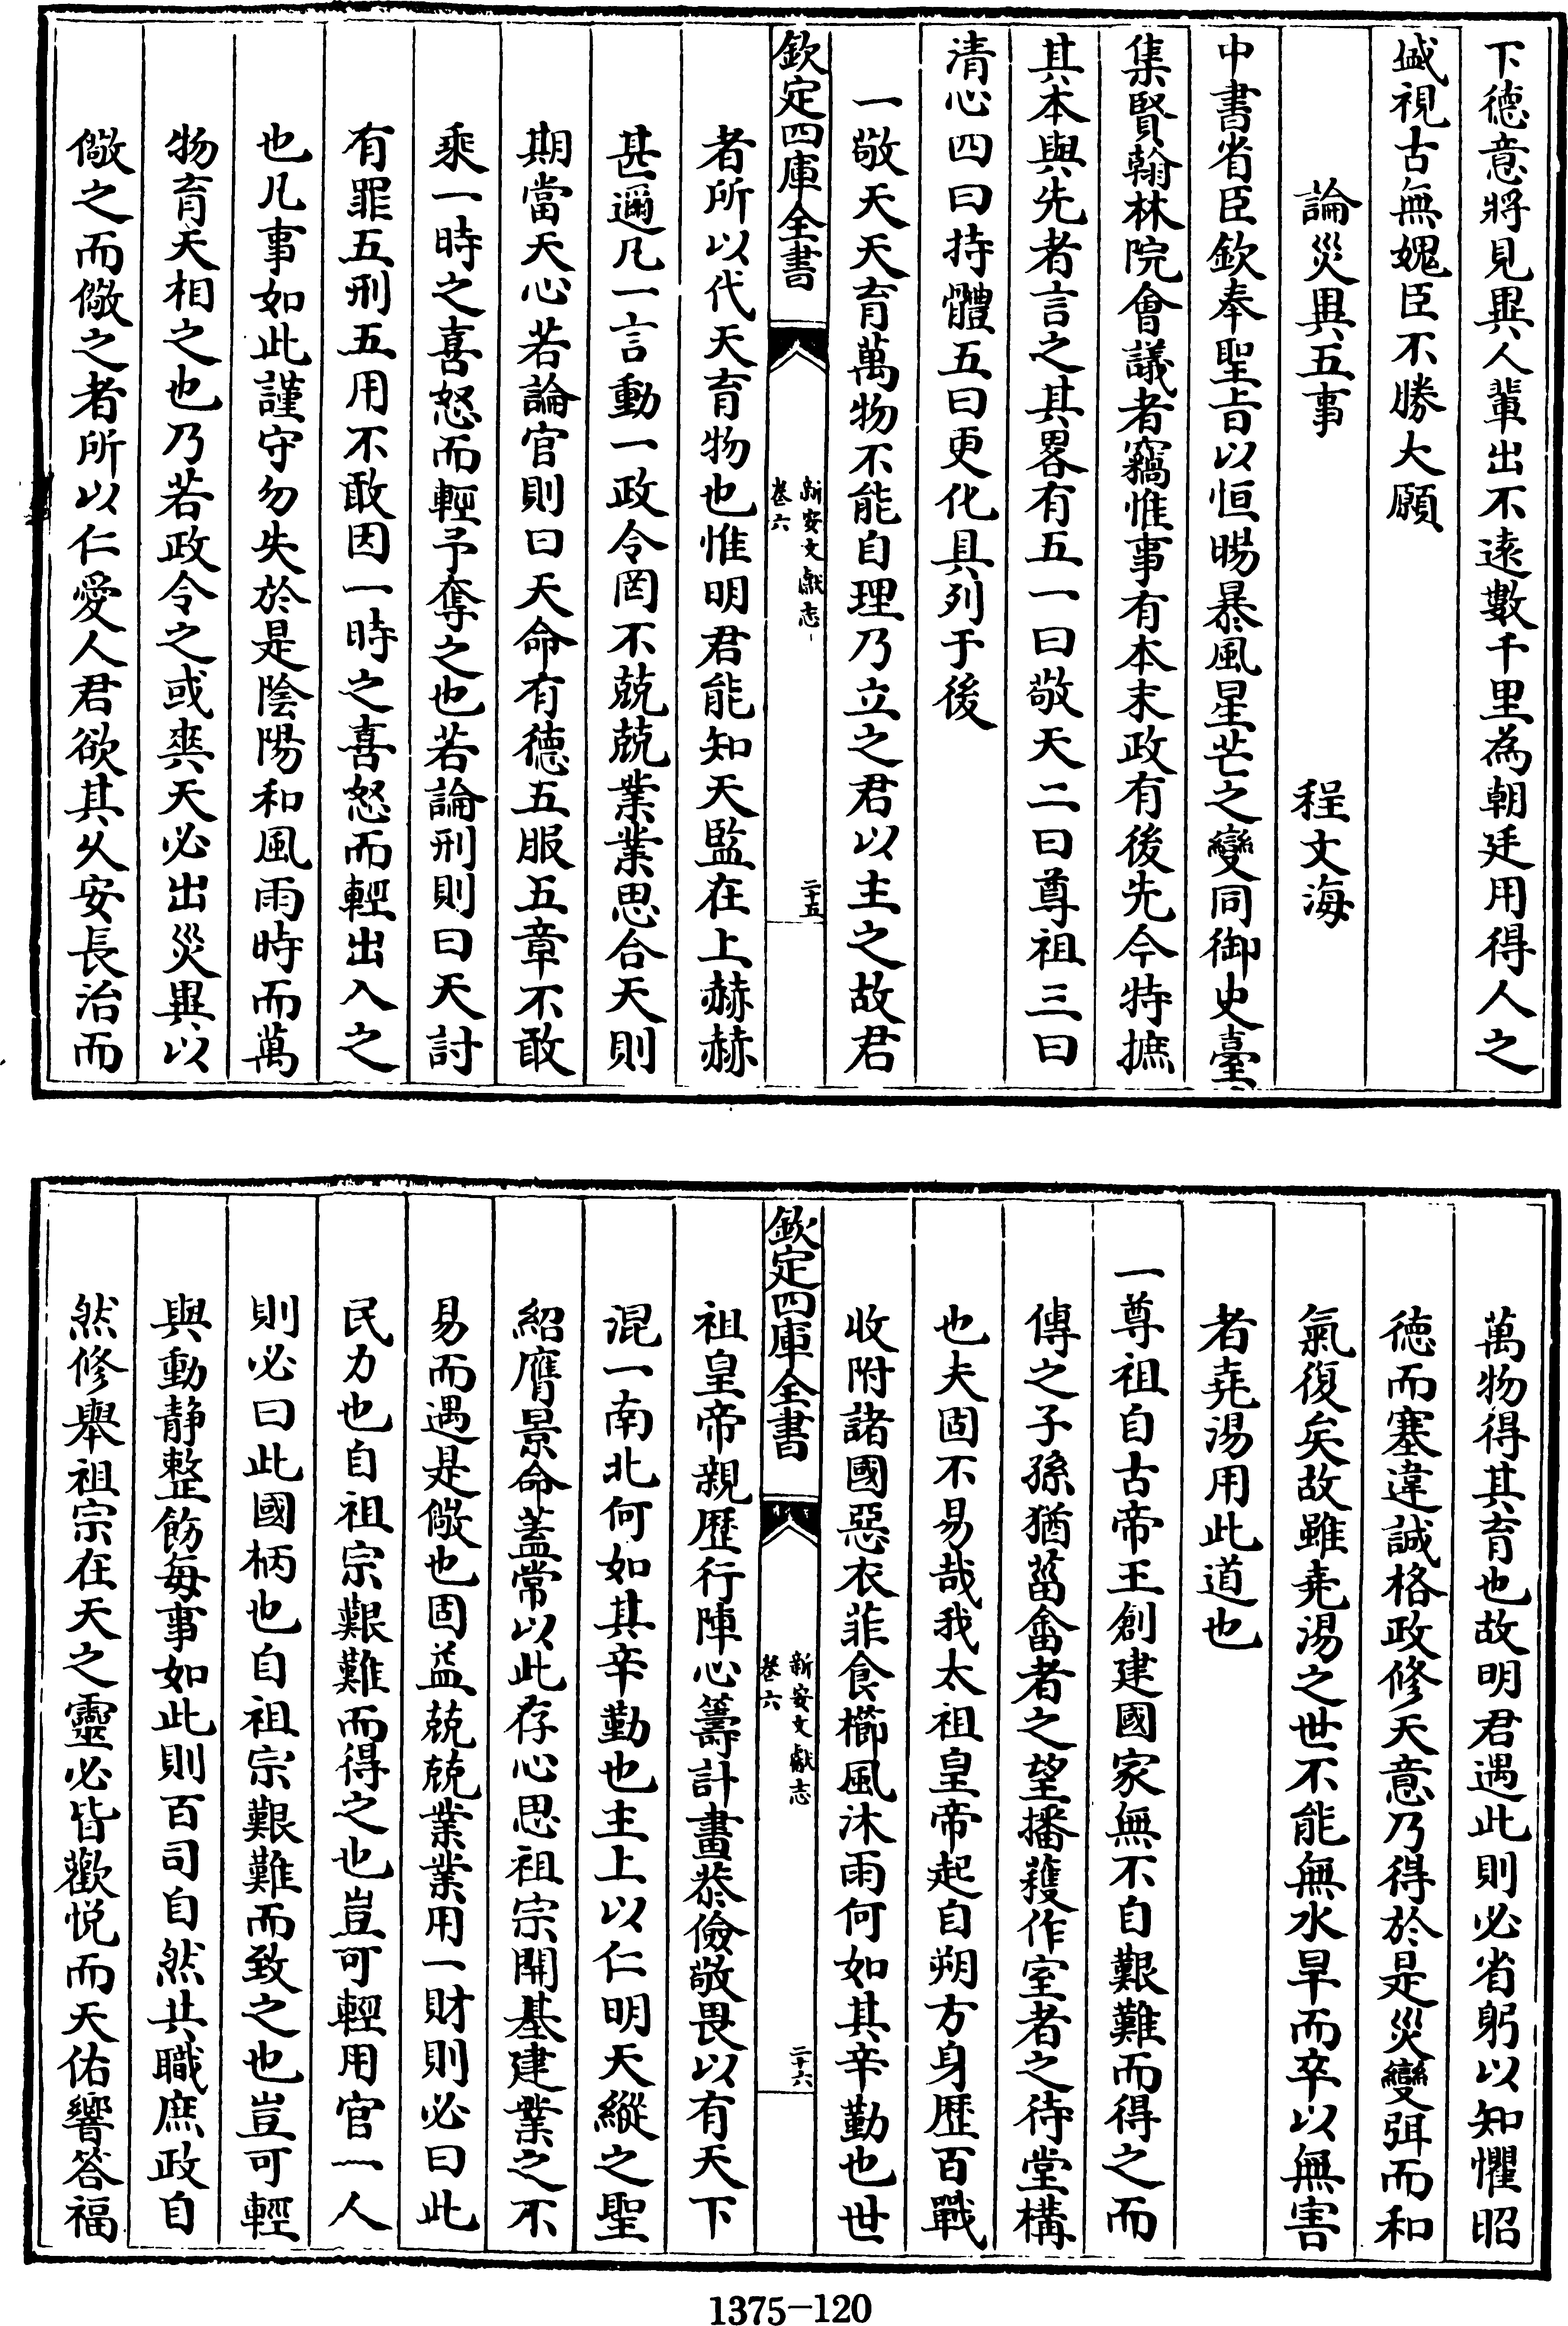 下德意將見異人輩出不遠數千里為朝廷用得人之
盛視古無媿臣不勝大願
論災異五事　程文海
中書省臣欽奉聖旨以恒暘暴風星芒之變同御史臺
集賢翰林院會議者竊惟事有本末政有後先今特摭
其本與先者言之其畧有五一曰敬天二曰尊祖三曰
清心四曰持體五曰更化具列于後
一敬天天育萬物不能自理乃立之君以主之故君
欽定四庫全書
新安文獻志
卷六
二十五
者所以代天育物也惟明君能知天監在上赫赫
甚邇凡一言動一政令罔不兢兢業業思合天則
期當天心若論官則曰天命有德五服五章不敢
乘一時之喜怒而輕予奪之也若論刑則曰天討
有罪五刑五用不敢因一時之喜怒而輕出入之
也凡事如此謹守勿失於是陰陽和風雨時而萬
物育天相之也乃若政令之或爽天必出災異以
儆之而儆之者所以仁愛人君欲其乆安長治而
萬物得其育也故明君遇此則必省躬以知懼昭
德而塞違誠格政修天意乃得於是災變弭而和
氣復矣故雖堯湯之世不能無水旱而卒以無害
者堯湯用此道也
一尊祖自古帝王創建國家無不自艱難而得之而
傳之子孫猶菑畬者之望播穫作室者之待堂構
也夫固不易哉我太祖皇帝起自朔方身歷百戰
收附諸國惡衣菲食櫛風沐雨何如其辛勤也世
欽定四庫全書
新安文獻志
卷六
二十六
祖皇帝親歷行陣心籌計畫恭儉敬畏以有天下
混一南北何如其辛勤也主上以仁明天縱之聖
紹膺景命蓋常以此存心思祖宗開基建業之不
易而遇是儆也固益兢兢業業用一財則必曰此
民力也自祖宗艱難而得之也豈可輕用官一人
則必曰此國柄也自祖宗艱難而致之也豈可輕
與動静整飭每事如此則百司自然共職庶政自
然修舉祖宗在天之靈必皆歡悦而天佑響答福
1375-120